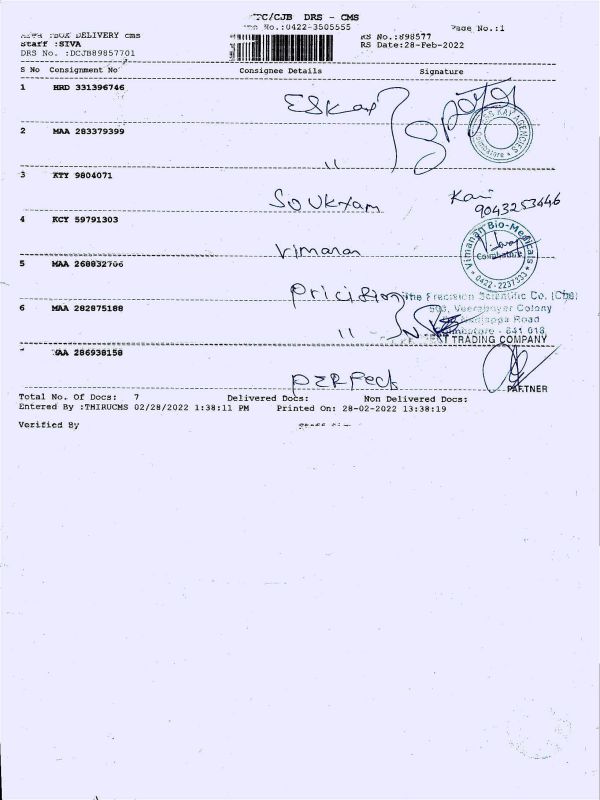 TC/CJB DRS - CMS
No.:0422-3505555
Page No.:1
BOX DELIVERY cms
Staff :SIVA
DRS No. :DCJB89857701
RS No.:898577
RS Date:28-Feb-2022
S No Consignment No Consignee Details Signature
1 HRD 331396746 ESKay
2 MAA 283379399 "
KAY AGENCIES
Coimbatore
3 KTY 9804071 SOUKYAM
9043253446
4 KCY 59791303 Vimanan
Vimanan Bio-Medicals
Coimbatore
0422-2237333
5 MAA 268832706 Pricision
The Precision Scientific Co. (Cbe)
503, Veerapayer Colony
Road
6 MAA 282875188 "
Coimbatore - 641 018
TRADING COMPANY
286938158 PERFECT
PARTNER
Total No. Of Docs: 7 Delivered Docs: Non Delivered Docs:
Entered By :THIRUCMS 02/28/2022 1:38:11 PM Printed On: 28-02-2022 13:38:19
Verified By